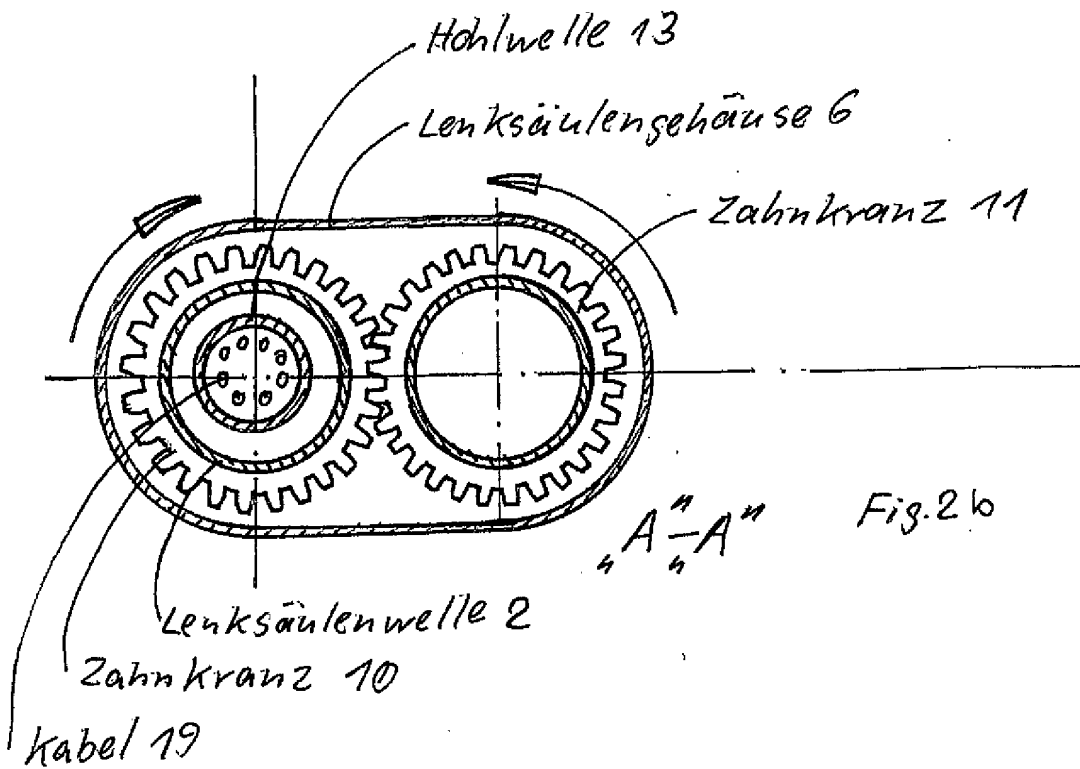 Hohlwelle 13
Lenksäulengehäuse 6
Zahnkranz 11
„A"-„A"
Fig. 2b
Lenksäulenwelle 2
Zahnkranz 10
Kabel 19